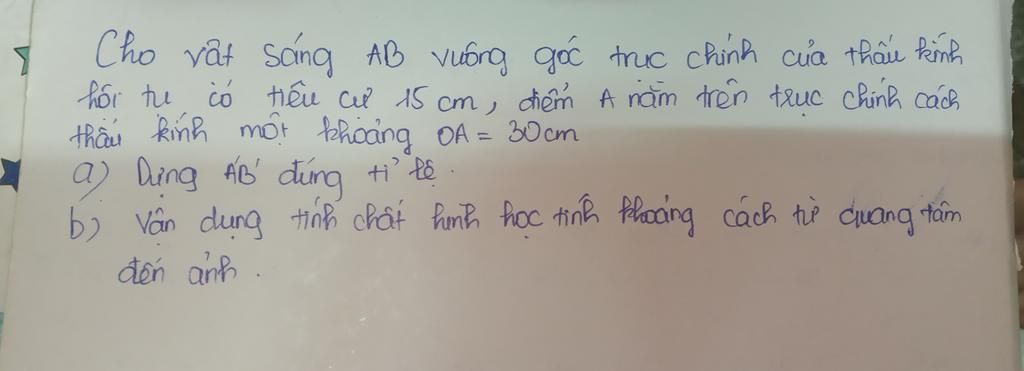 Cho vật sáng AB vuông góc trục chính của thấu kính
hội tụ có tiêu cự 15 cm, điểm A nằm trên trục chính cách
thấu kính một khoảng OA = 30cm
a) Dựng A'B' đúng tỉ lệ.
b) Vận dụng tính chất hình học tính khoảng cách từ quang tâm
đến ảnh.